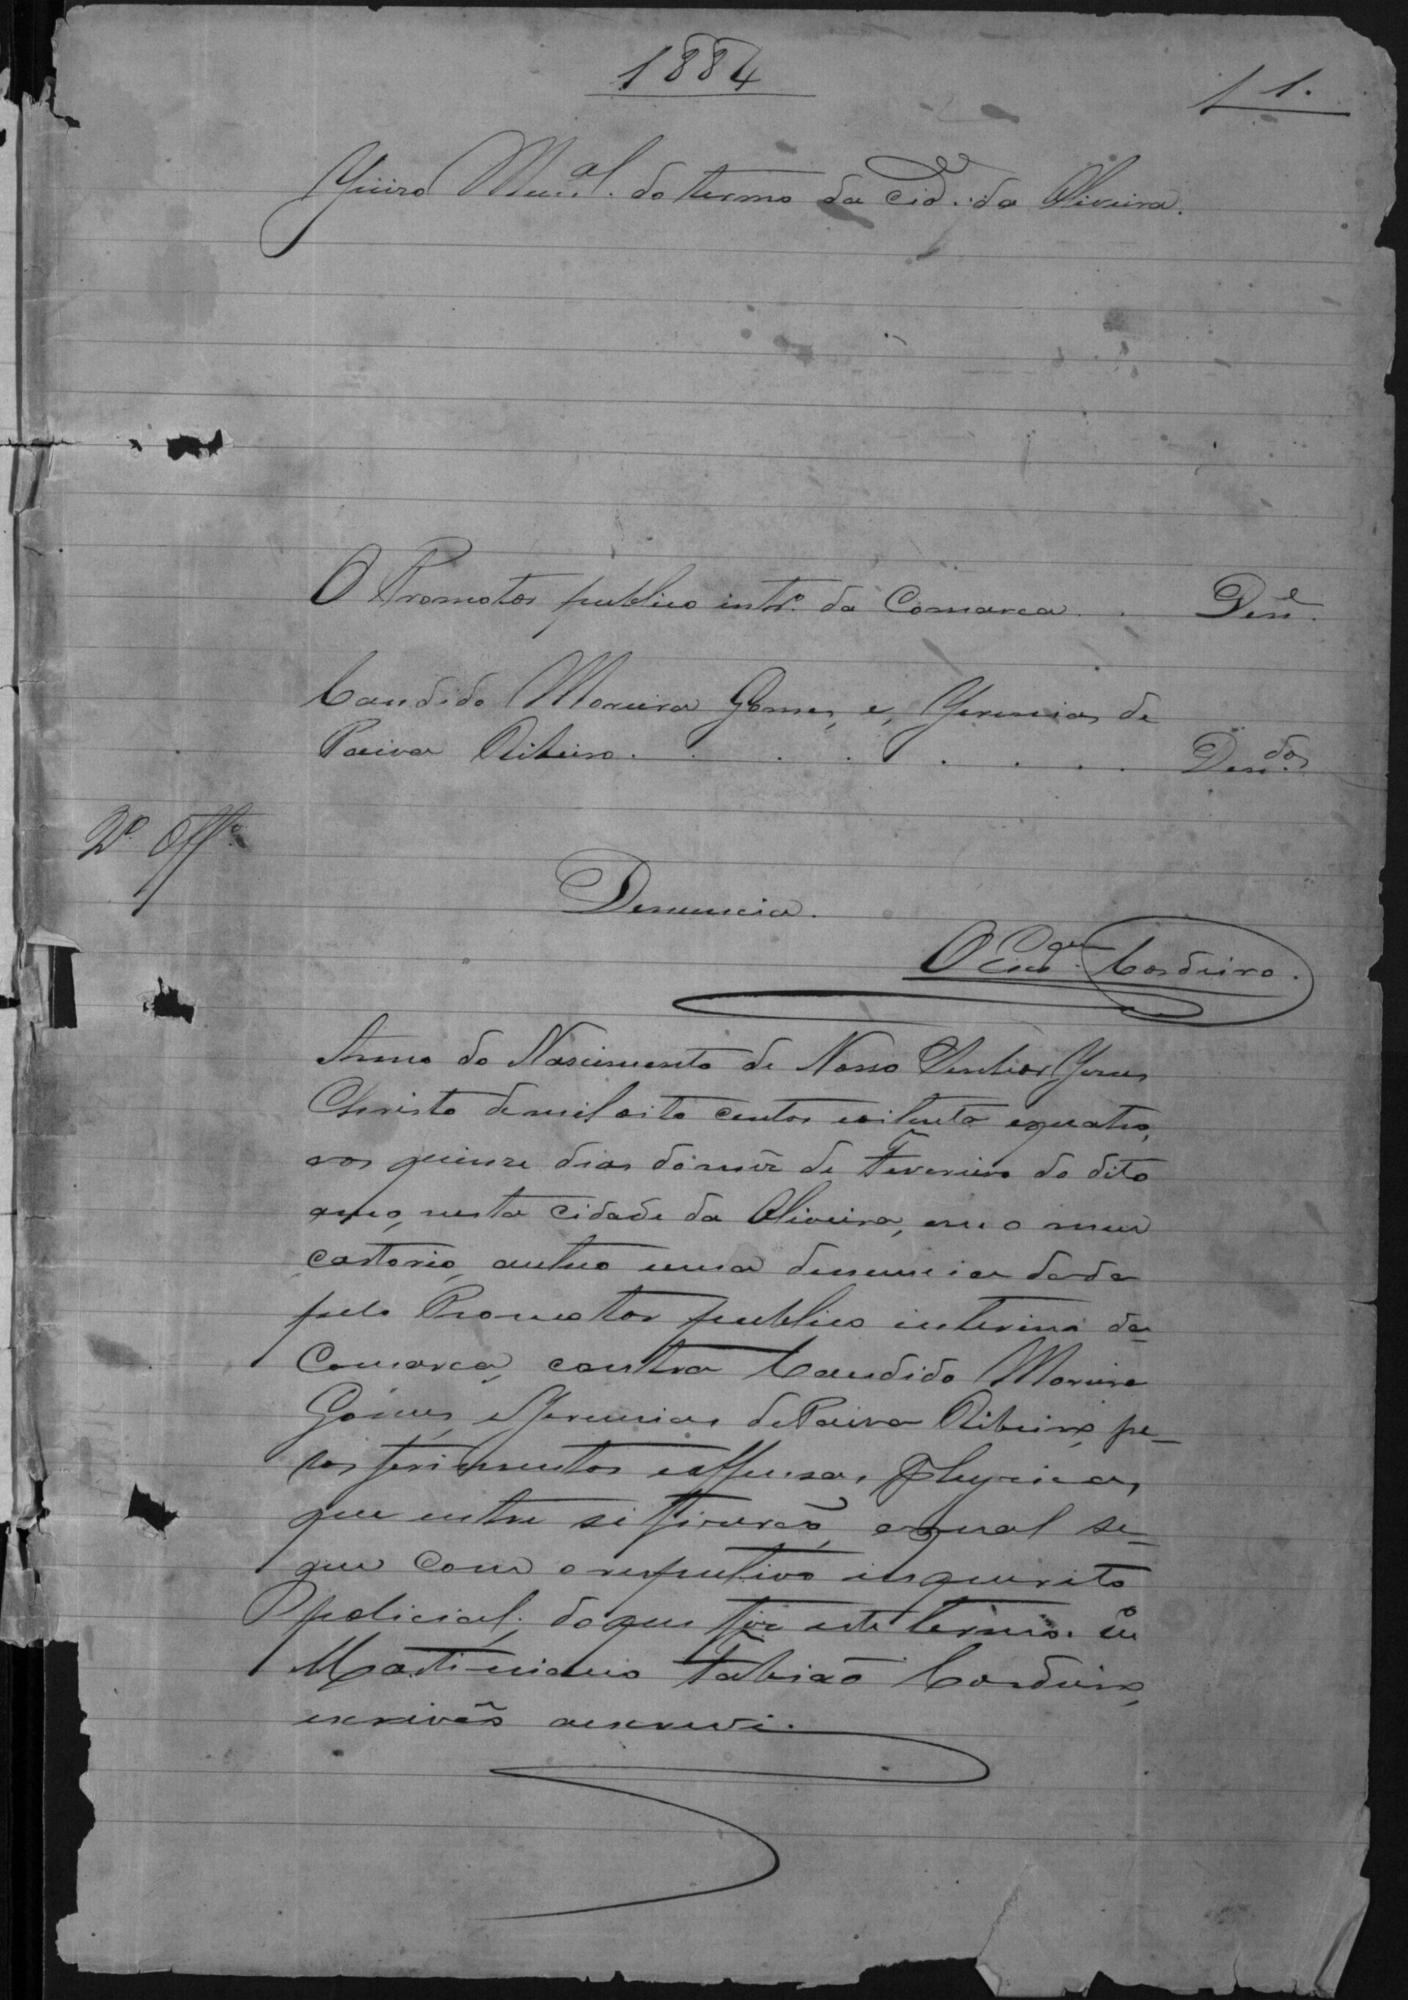 1884
f 1.
Juizo Mun.al do termo da Cid.e da Oliveira.
O Promotor publico int.º da Comarca . . Den.e
Candido Moreira Gomes, e, Jeremias de
Paiva Ribeiro . . . . . . . . Den.dos
2º Offº
Denuncia.
O Escr.am Cordeiro.
Anno do Nascimento de Nosso Senhor Jesus
Christo de mil oito centos eoitenta equatro,
aos quinze dias do mez de Fevereiro do dito
anno, nesta Cidade da Oliveira, em o meu
cartorio, autuo uma denuncia dada
pelo Promotor publico interino da
Comarca, contra Candido Moreira
Gomes, e Jeremias de Paiva Ribeiro, pe-
los ferimentos eoffensas physicas,
que entre si fizerão, aqual se-
gue com o respectivo inquerito
policial; do que fiz este termo. Eu
Martiniano Fabião Cordeiro,
escrivão oescrevi.